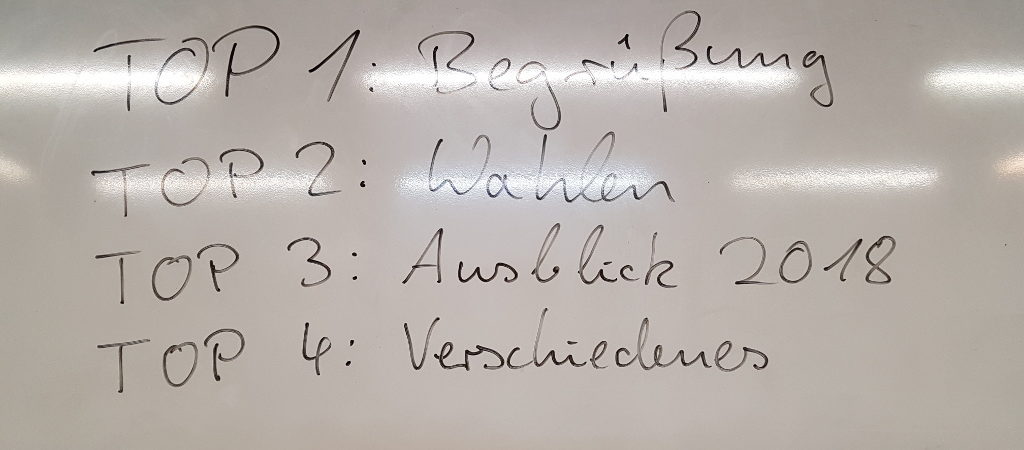 TOP 1: Begrüßung
TOP 2: Wahlen
TOP 3: Ausblick 2018
TOP 4: Verschiedenes